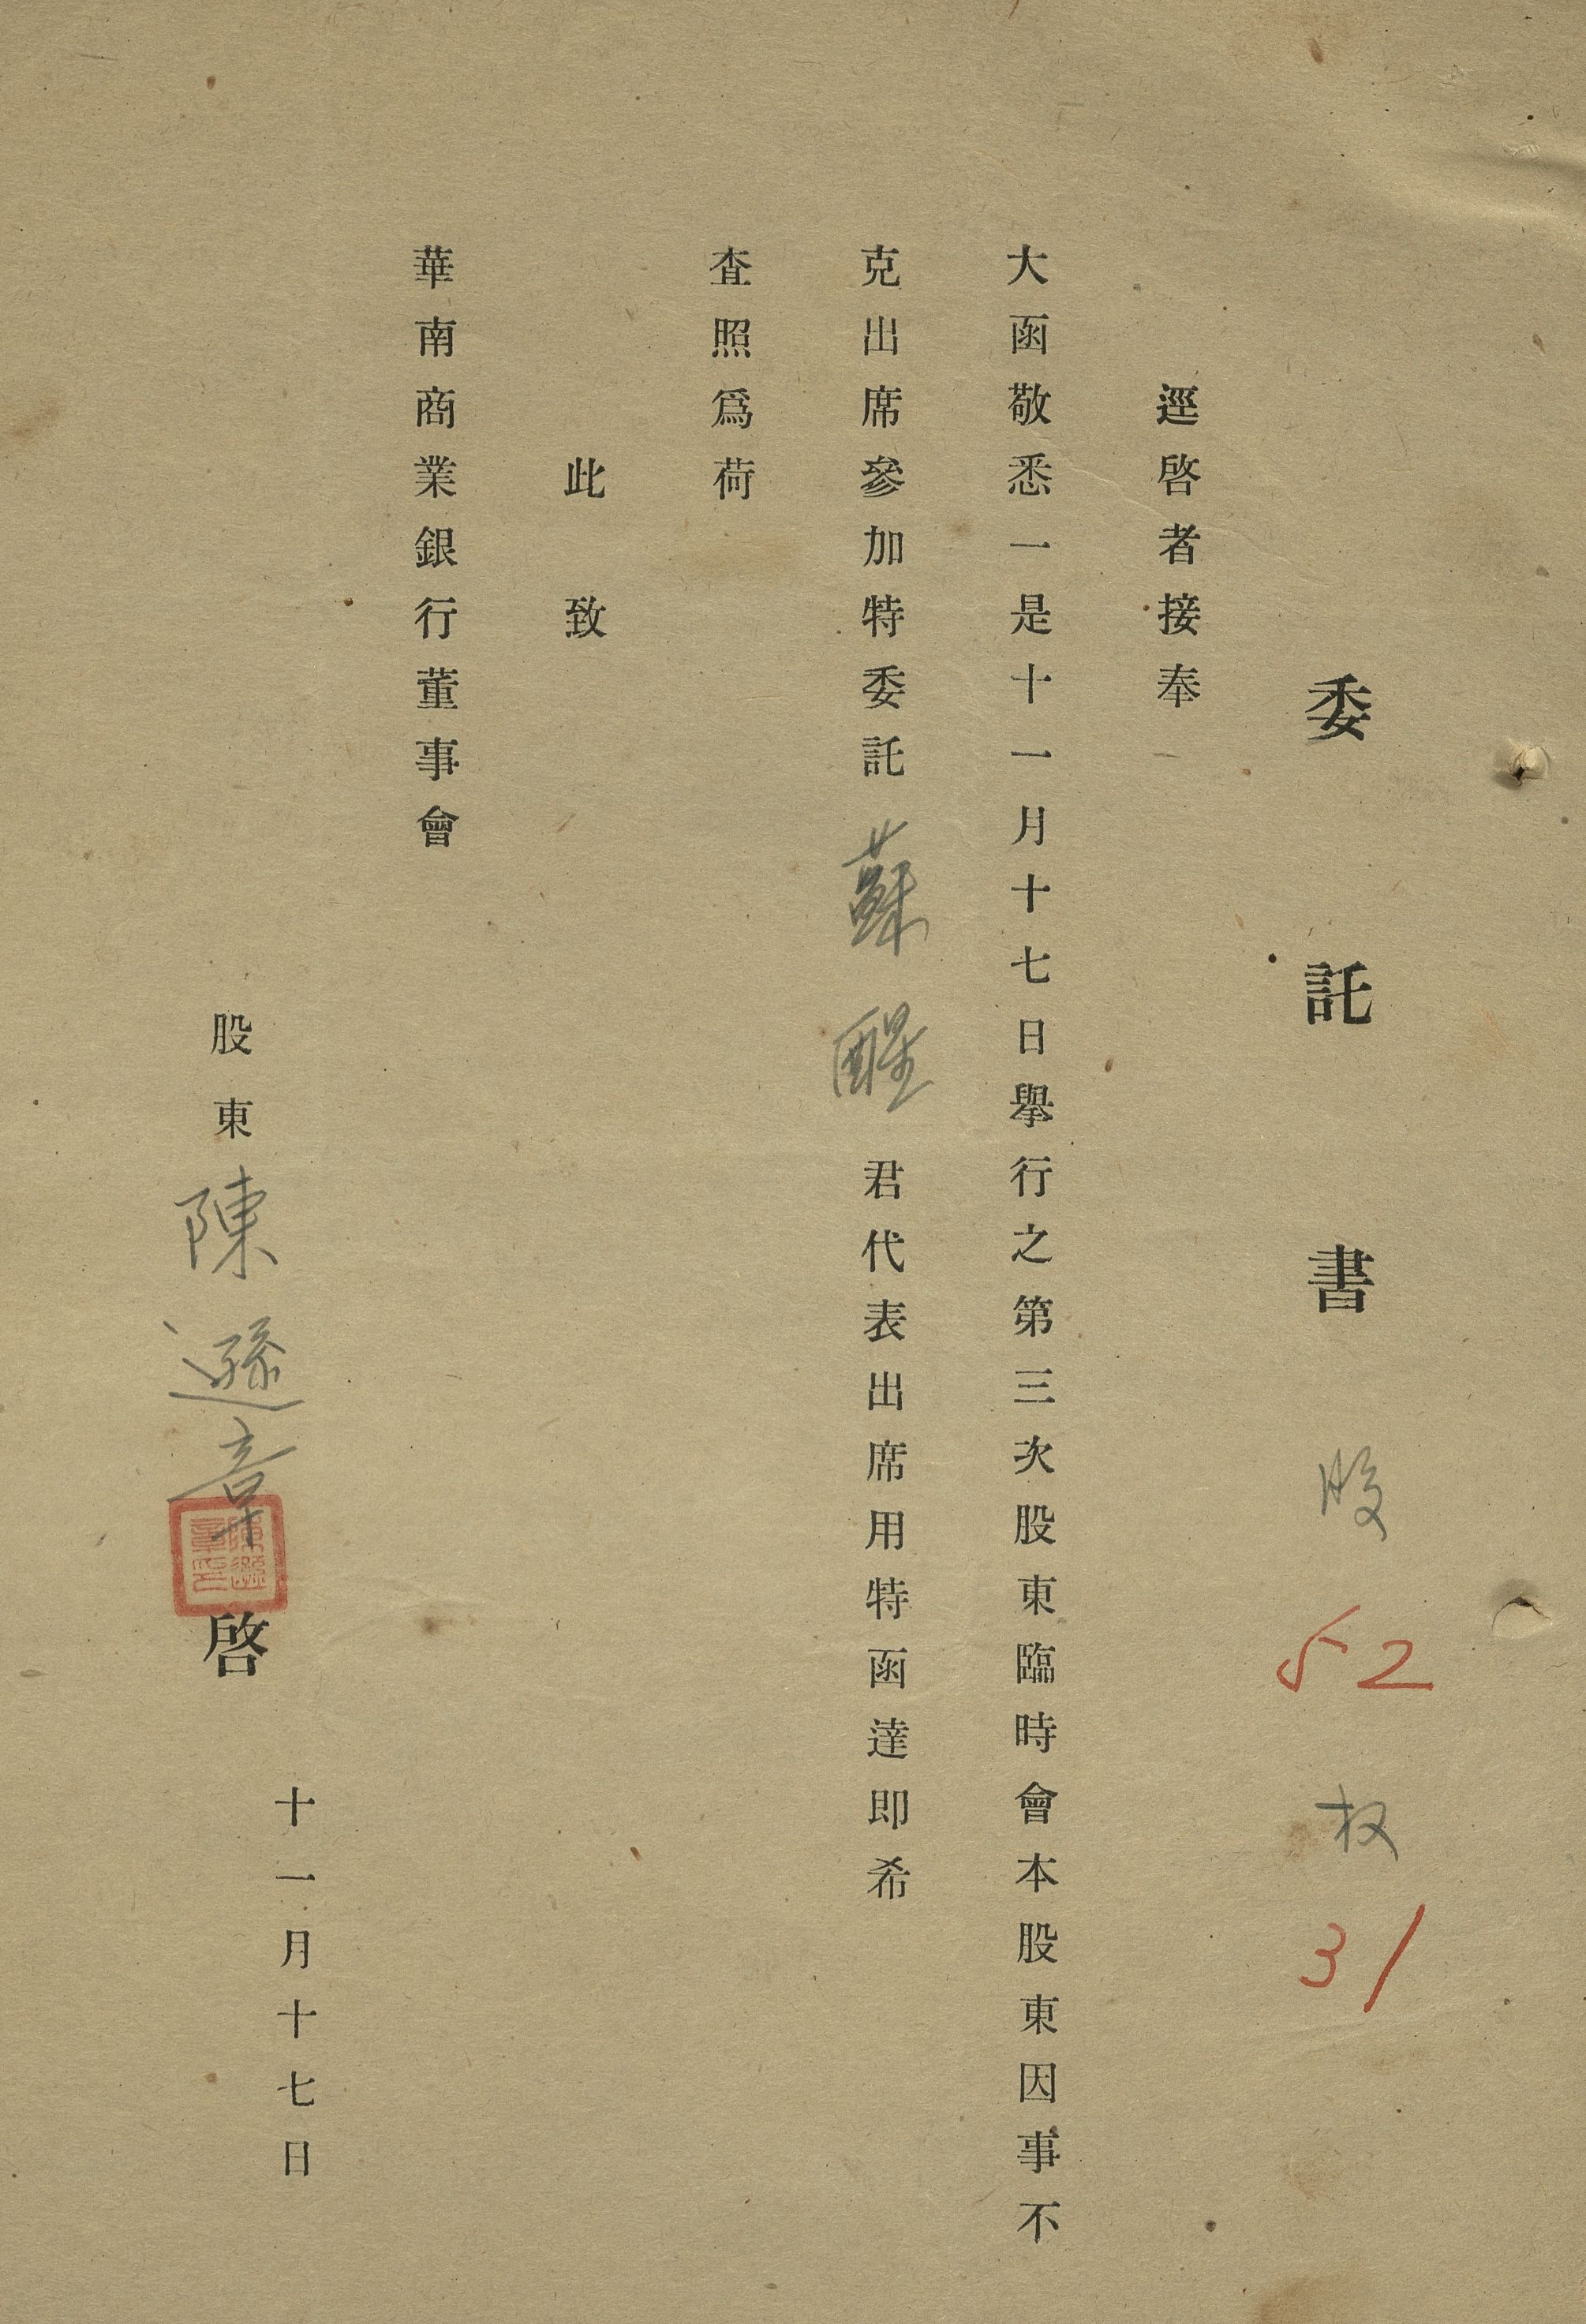 委託書 股 52 权 31
逕啓者接奉
大函敬悉一是十一月十七日舉行之第三次股東臨時會本股東因事不
克出席參加特委託 蘇醒 君代表出席用特函達即希
査照爲荷
此致
華南商業銀行董事會
十一月十七日
股東 陳遜章 啓
陳遜章印